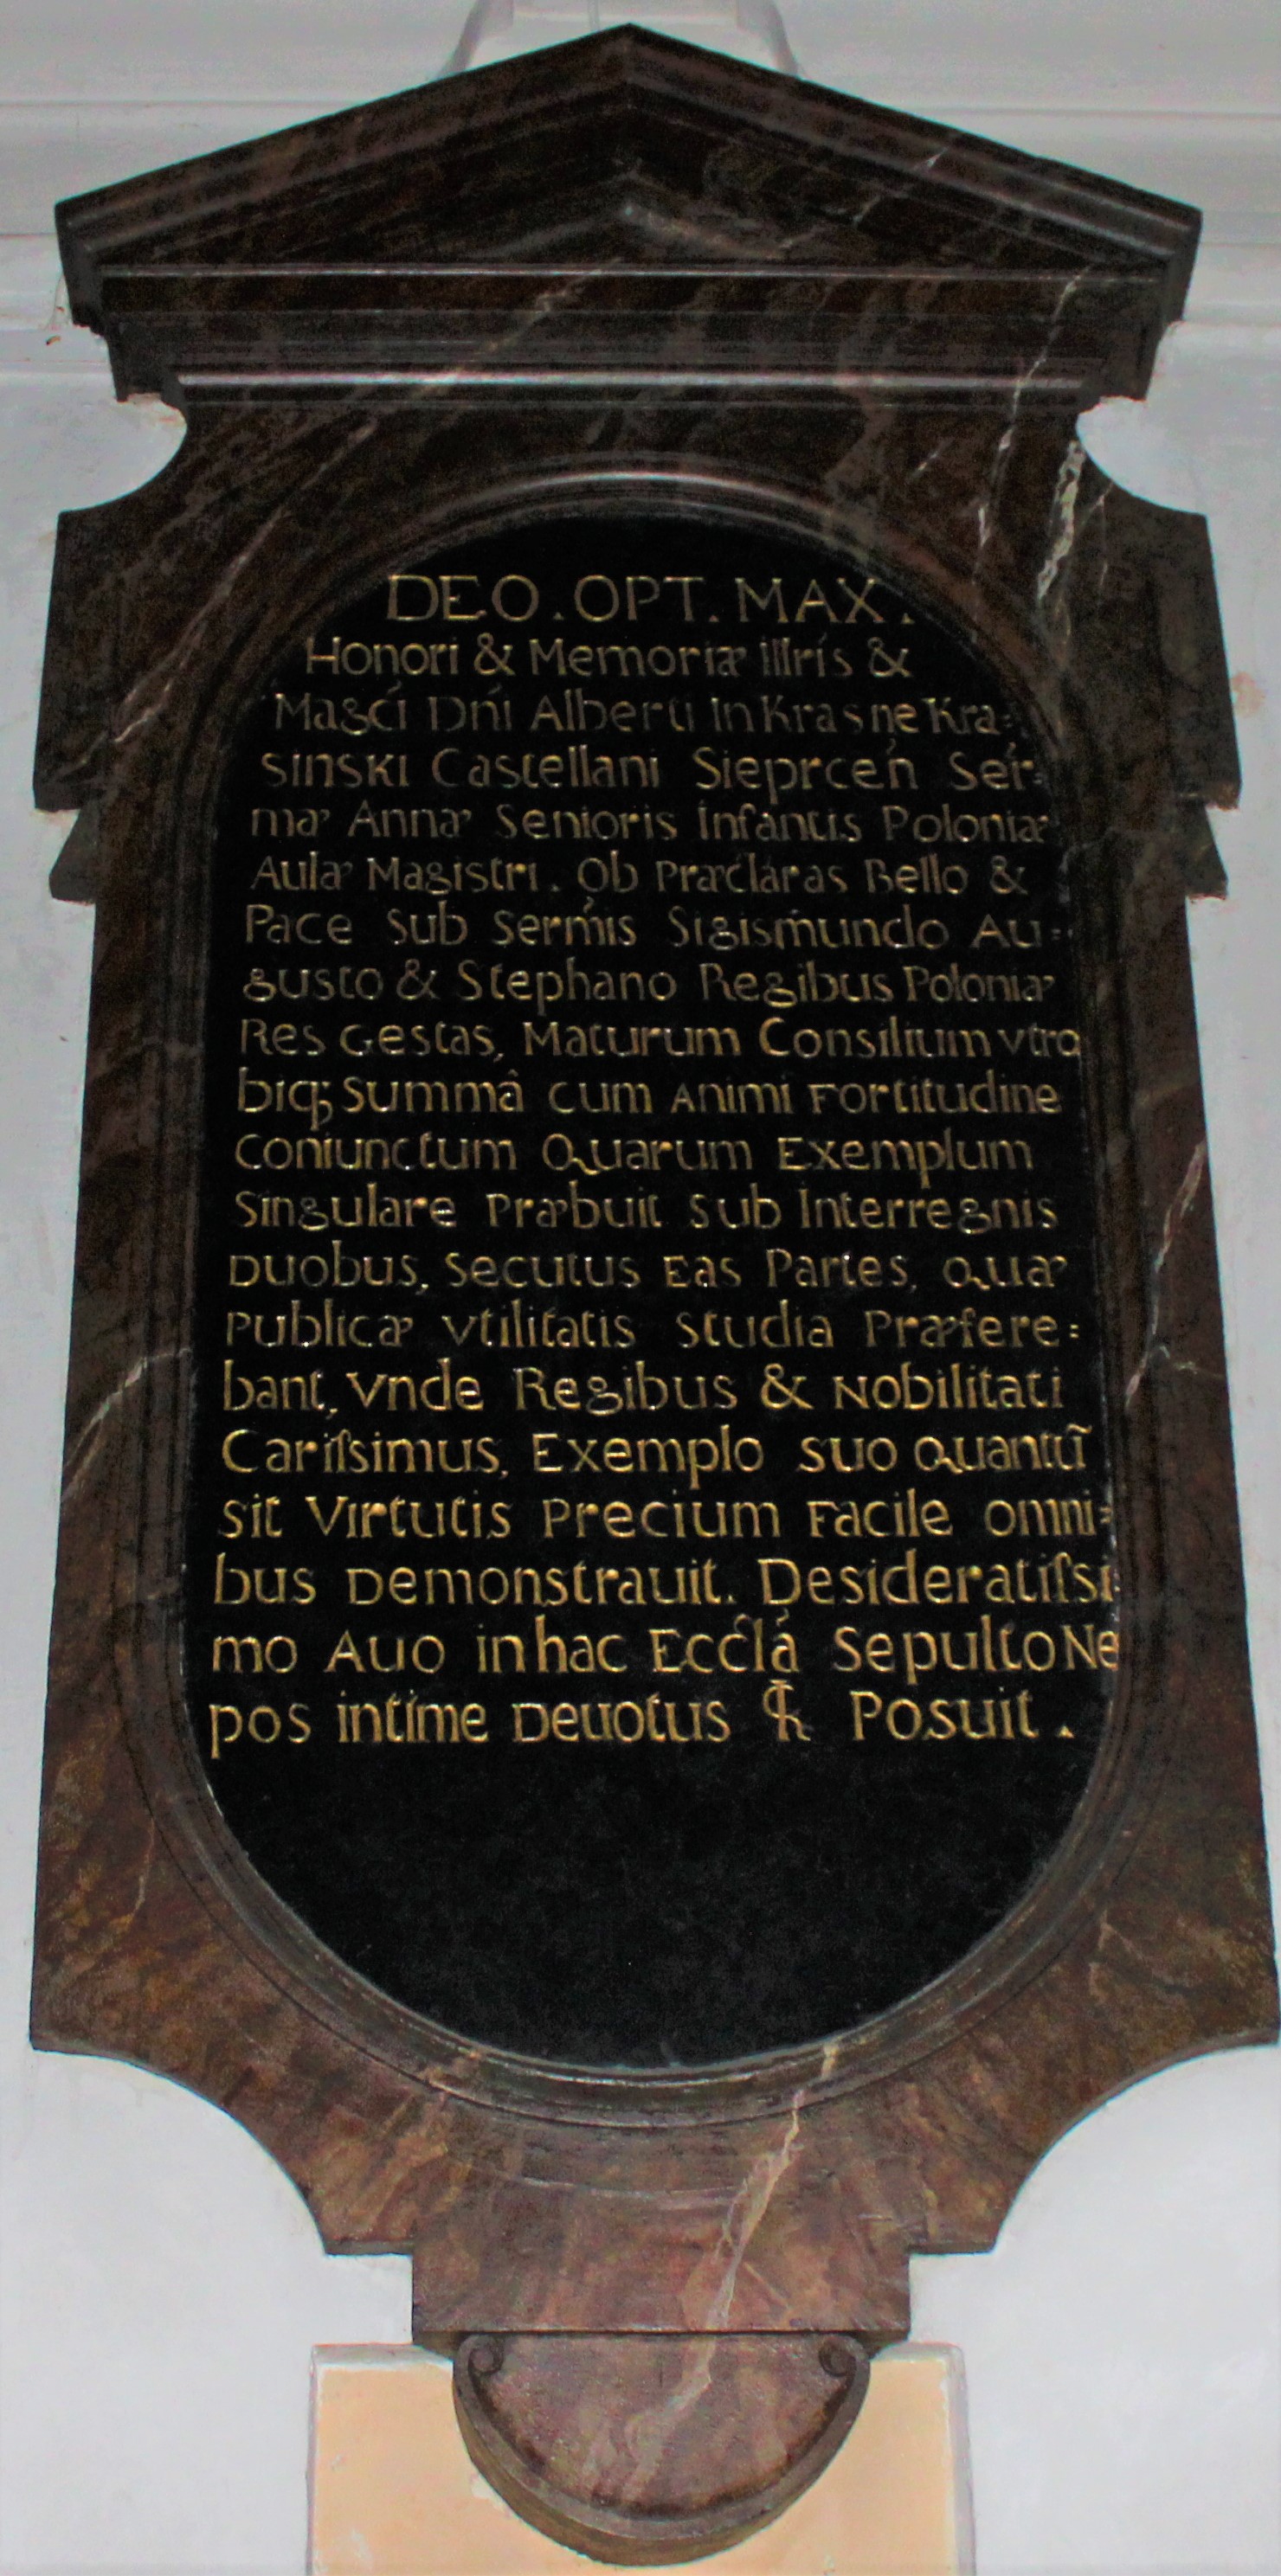 DEO . OPT. MAX .
Honori & Memoriæ Illris &
Magći Dńi Alberti In Krasne Kra=
sinski Castellani Sieprceń Ser=
mæ Annæ Senioris Infantis Poloniæ
Aulæ Magistri. Ob Præclaras Bello &
Pace Sub Sermis Sigismundo Au=
gusto & Stephano Regibus Poloniæ
Res Gestas, Maturum Consilium vtro
biq; Summâ cum Animi Fortitudine
Coniunctum Quarum Exemplum
Singulare Præbuit Sub Interregnis
Duobus, Secutus Eas Partes, Quæ
Publicæ Vtilitatis Studia Præfere=
bant, Vnde Regibus & Nobilitati
Cariſsimus, Exemplo Suo Quantũ
sit Virtutis Precium Facile omni=
bus Demonstrauit. Desideratiſsi
mo Auo in hac Eccła Sepulto Ne
pos intime Deuotus Posuit .